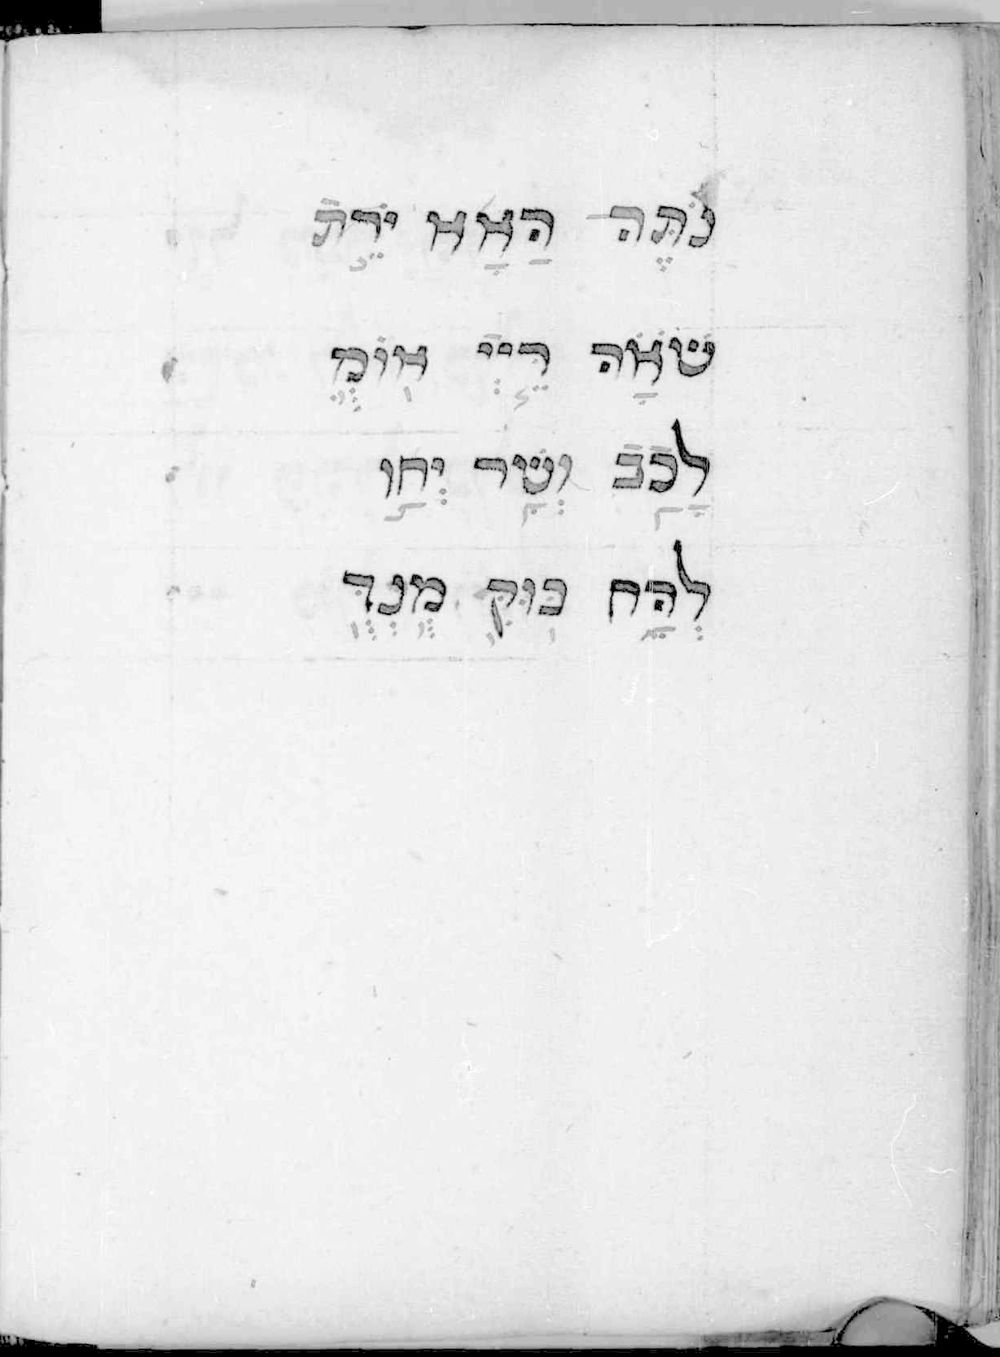 נֹתֶּה הַאָא יֹרֵת
שֹׁאָה רֵיְי אוֹמֱ
לָכֹב וְשָׁר יְחַו
לְהַח כוּקֶ מֶנְדְ